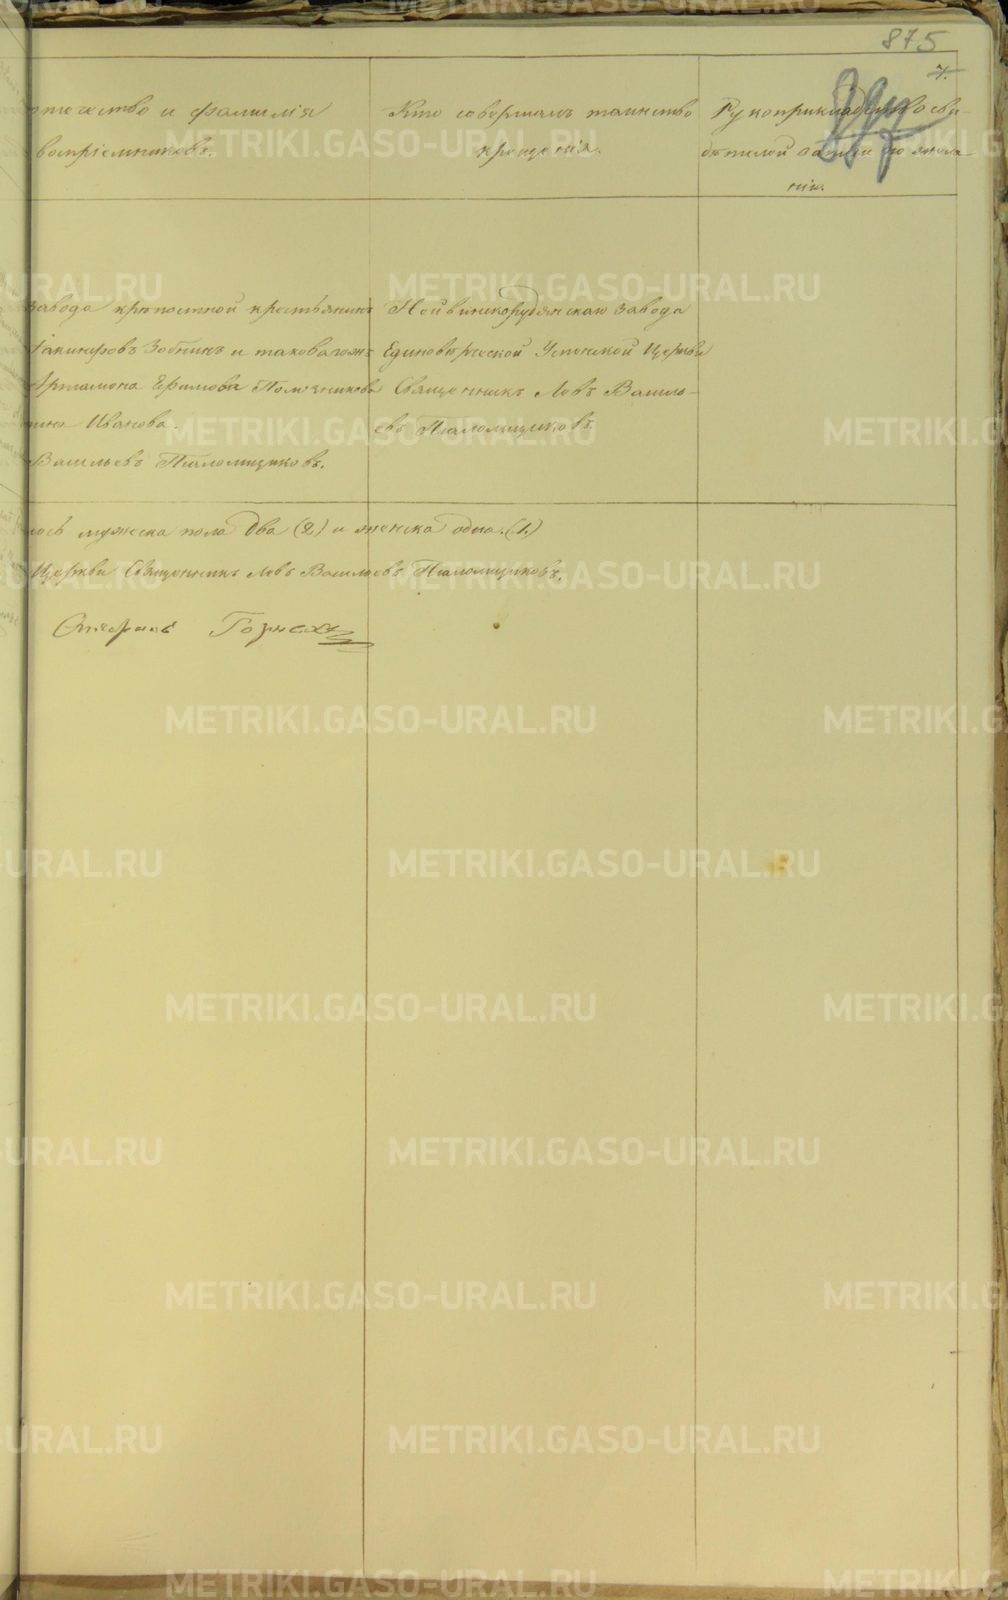 875
7.
отчество и фамилія
воспріемниковъ.
Кто совершалъ таинство
крещенія.
Рукоприкладство сви-
дѣтелей записи по жела-
нію.
завода крѣпостной крестьянинъ
Іакинфовъ Зобнинъ и таковагожъ
Артамона Ефимова
Иванова.
Васильевъ Паломщиковъ.
Нейвинскорудянскаго завода
Единовѣрческой Успенской Церкви
Священникъ Левъ Василь-
евъ Паломщиковъ.
лось мужеска пола два (2) и женска одна. (1.)
Церкви Священникъ Левъ Васильевъ Паломщиковъ.
METRIKI.GASO-URAL.RU